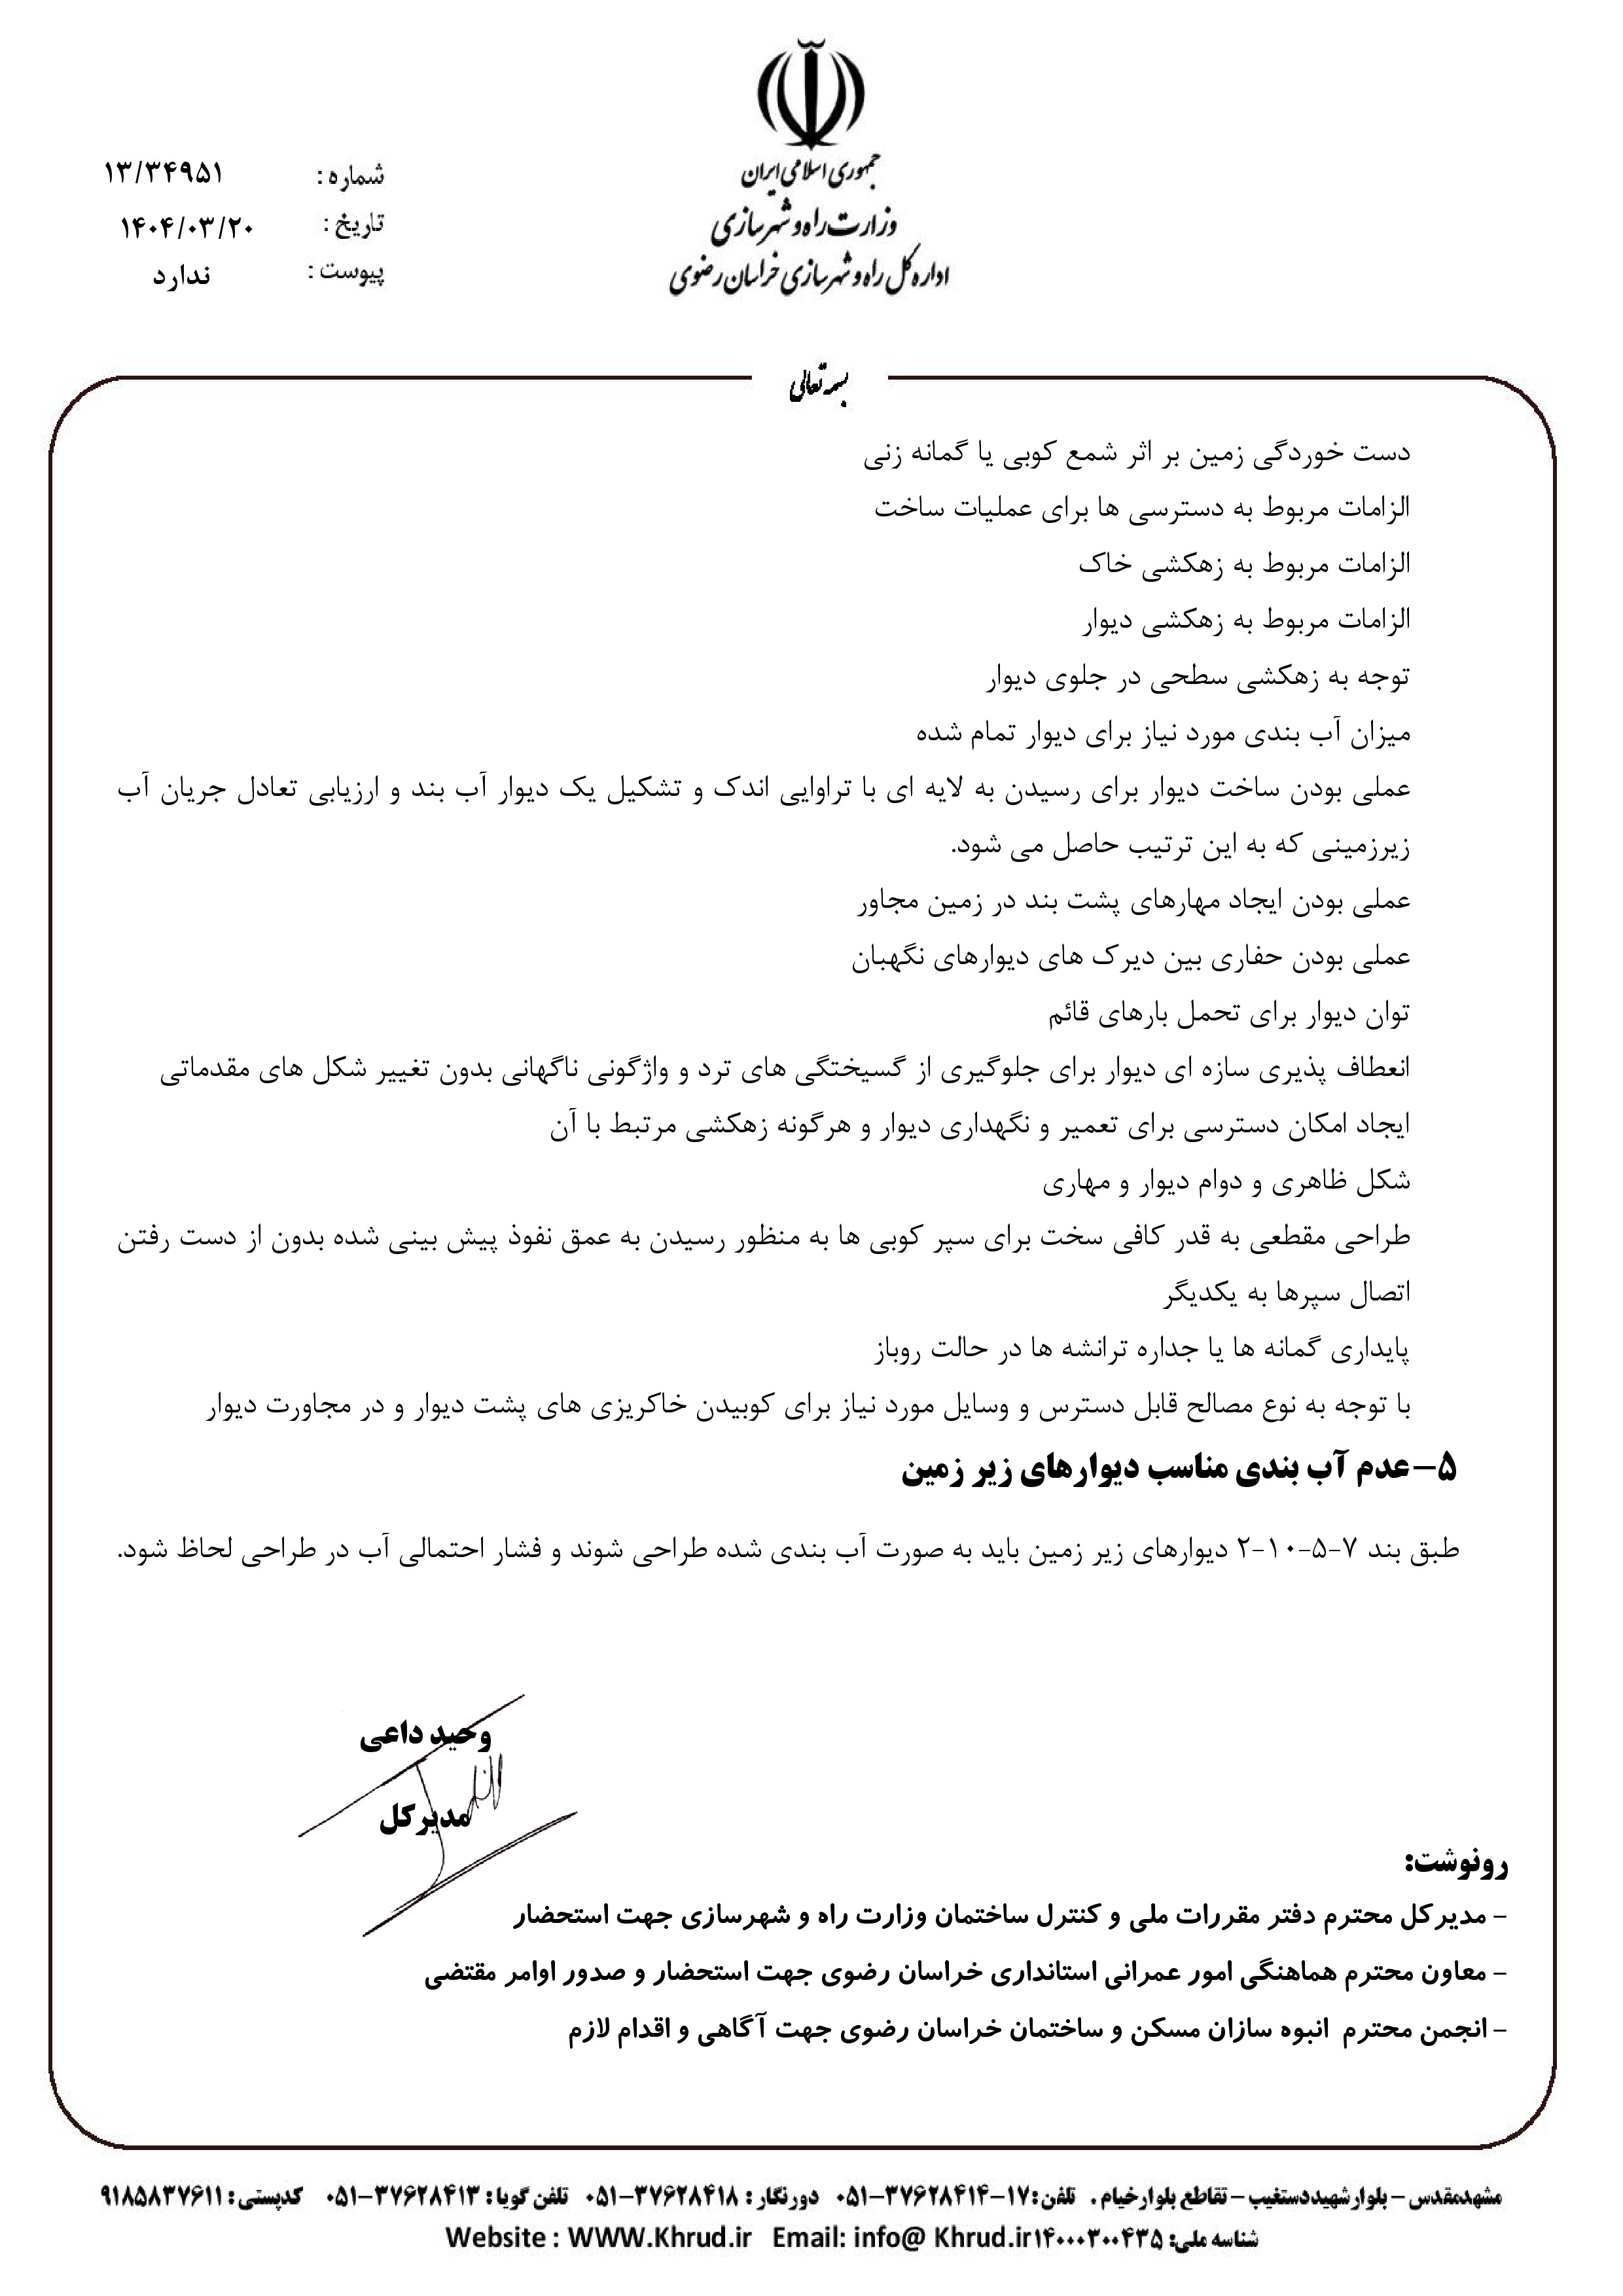 جمهوری اسلامی ایران
وزارت راه و شهرسازی
اداره کل راه و شهرسازی خراسان رضوی
شماره : ۱۳/۳۴۹۵۱
تاریخ : ۱۴۰۴/۰۳/۲۰
پیوست : ندارد
بسمه تعالی
دست خوردگی زمین بر اثر شمع کوبی یا گمانه زنی
الزامات مربوط به دسترسی ها برای عملیات ساخت
الزامات مربوط به زهکشی خاک
الزامات مربوط به زهکشی دیوار
توجه به زهکشی سطحی در جلوی دیوار
میزان آب بندی مورد نیاز برای دیوار تمام شده
عملی بودن ساخت دیوار برای رسیدن به لایه ای با تراوایی اندک و تشکیل یک دیوار آب بند و ارزیابی تعادل جریان آب
زیرزمینی که به این ترتیب حاصل می شود.
عملی بودن ایجاد مهارهای پشت بند در زمین مجاور
عملی بودن حفاری بین دیرک های دیوارهای نگهبان
توان دیوار برای تحمل بارهای قائم
انعطاف پذیری سازه ای دیوار برای جلوگیری از گسیختگی های ترد و واژگونی ناگهانی بدون تغییر شکل های مقدماتی
ایجاد امکان دسترسی برای تعمیر و نگهداری دیوار و هرگونه زهکشی مرتبط با آن
شکل ظاهری و دوام دیوار و مهاری
طراحی مقطعی به قدر کافی سخت برای سپر کوبی ها به منظور رسیدن به عمق نفوذ پیش بینی شده بدون از دست رفتن
اتصال سپرها به یکدیگر
پایداری گمانه ها یا جداره ترانشه ها در حالت روباز
با توجه به نوع مصالح قابل دسترس و وسایل مورد نیاز برای کوبیدن خاکریزی های پشت دیوار و در مجاورت دیوار
۵-عدم آب بندی مناسب دیوارهای زیر زمین
طبق بند ۷-۵-۱۰-۲ دیوارهای زیر زمین باید به صورت آب بندی شده طراحی شوند و فشار احتمالی آب در طراحی لحاظ شود.
وحید داعی
مدیرکل
رونوشت:
- مدیرکل محترم دفتر مقررات ملی و کنترل ساختمان وزارت راه و شهرسازی جهت استحضار
- معاون محترم هماهنگی امور عمرانی استانداری خراسان رضوی جهت استحضار و صدور اوامر مقتضی
- انجمن محترم انبوه سازان مسکن و ساختمان خراسان رضوی جهت آگاهی و اقدام لازم
مشهدمقدس - بلوار شهیددستغیب - تقاطع بلوار خیام . تلفن: ۱۷-۳۷۶۲۸۴۱۴-۰۵۱ دورنگار : ۳۷۶۲۸۴۱۸-۰۵۱ تلفن گویا : ۳۷۶۲۸۴۱۳-۰۵۱ کدپستی : ۹۱۸۵۸۳۷۶۱۱
شناسه ملی: ۱۴۰۰۰۳۰۰۴۳۵ Website : WWW.Khrud.ir Email: info@ Khrud.ir